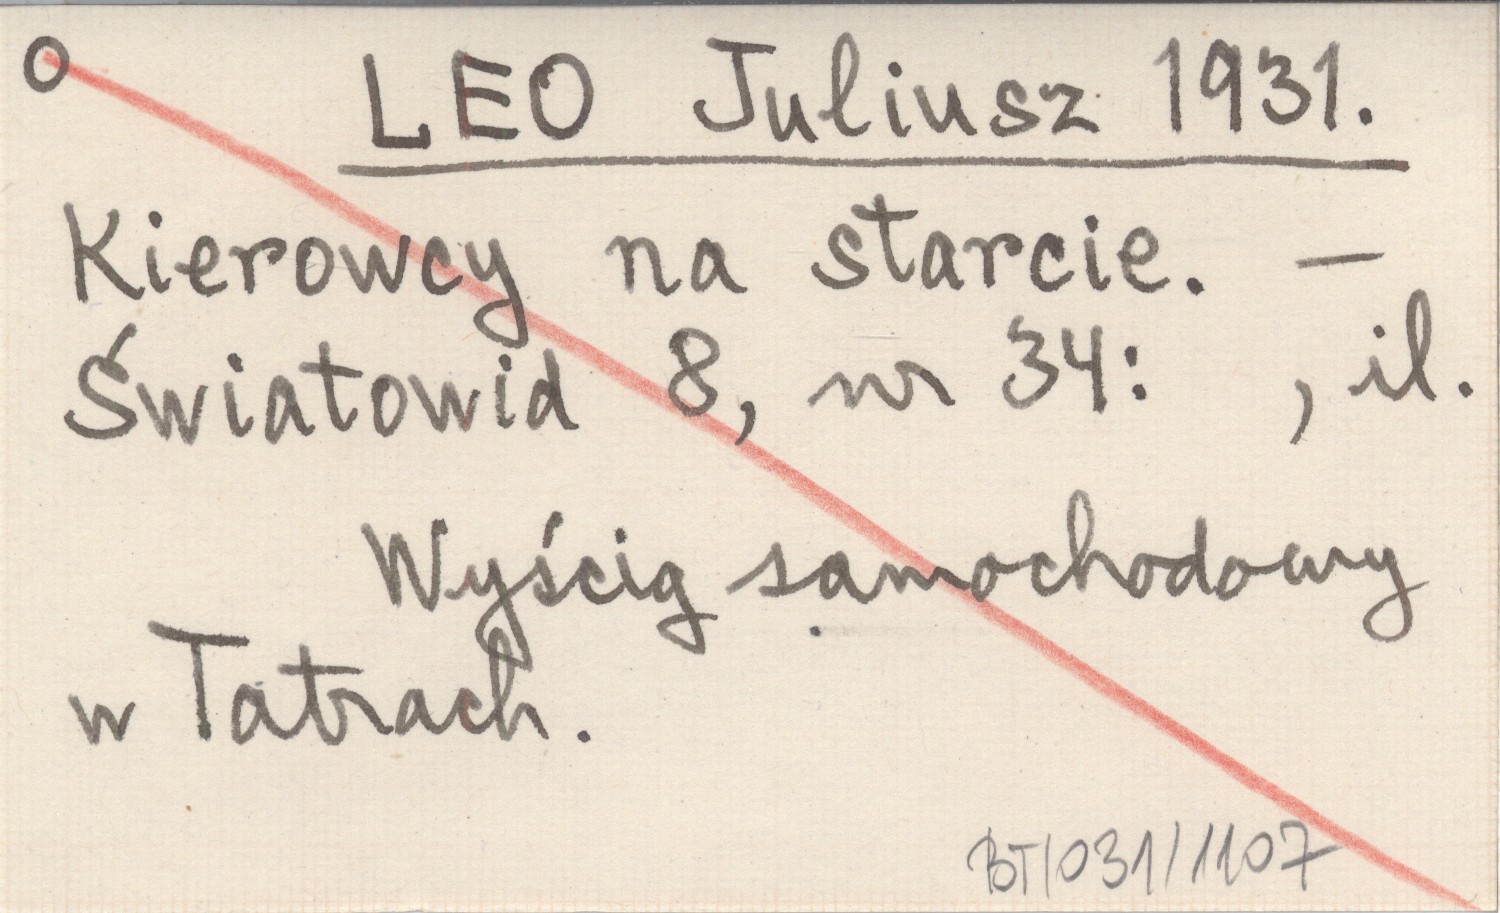 O LEO Juliusz 1931.
Kierowcy na starcie. —
Światowid 8, nr 34: , il.
Wyścig samochodowy
w Tatrach.
BT/031/1107